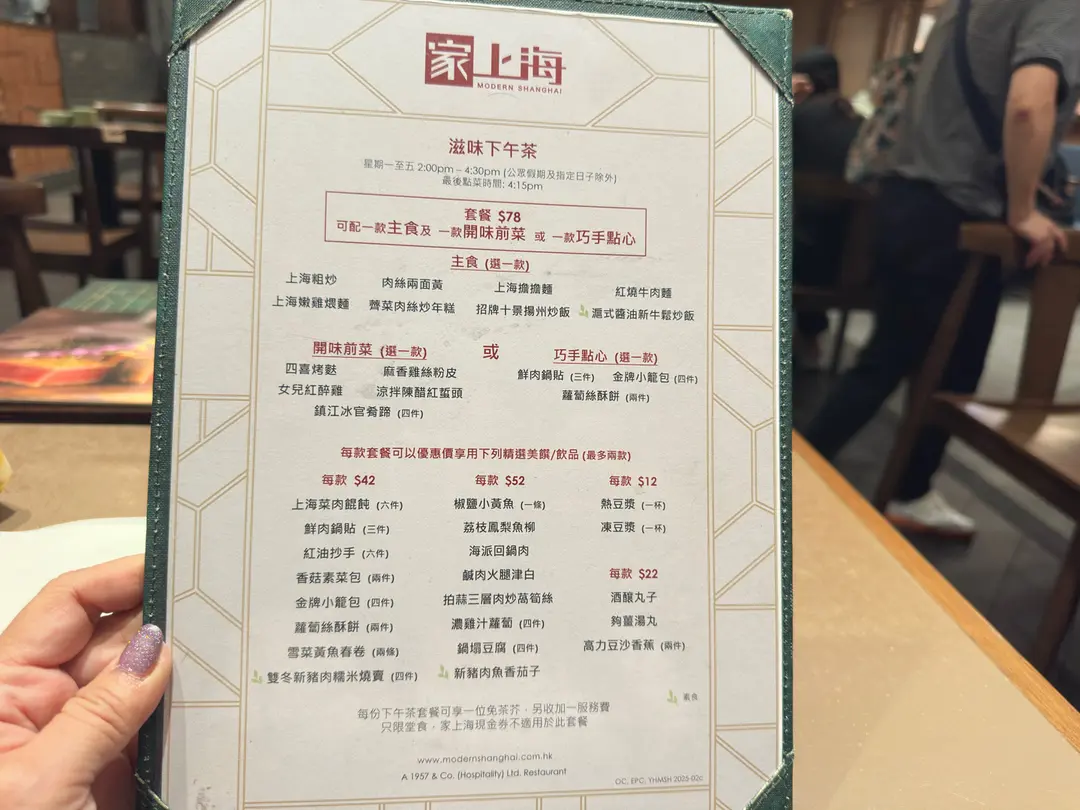 家上海
MODERN SHANGHAI
滋味下午茶
星期一至五 2:00pm – 4:30pm (公眾假期及指定日子除外)
最後點菜時間: 4:15pm
套餐 $78
可配一款主食及 一款開味前菜 或 一款巧手點心
主食 (選一款)
上海粗炒 肉絲兩面黃 上海擔擔麵 紅燒牛肉麵
上海嫩雞煨麵 薺菜肉絲炒年糕 招牌十景揚州炒飯 滬式醬油新牛鬆炒飯
開味前菜 (選一款) 或 巧手點心 (選一款)
四喜烤麩 麻香雞絲粉皮 鮮肉鍋貼 (三件) 金牌小籠包 (四件)
女兒紅醉雞 涼拌陳醋紅蜇頭 蘿蔔絲酥餅 (兩件)
鎮江冰官肴蹄 (四件)
每款套餐可以優惠價享用下列精選美饌/飲品 (最多兩款)
每款 $42 每款 $52 每款 $12
上海菜肉餛飩 (六件) 椒鹽小黃魚 (一條) 熱豆漿 (一杯)
鮮肉鍋貼 (三件) 荔枝鳳梨魚柳 凍豆漿 (一杯)
紅油抄手 (六件) 海派回鍋肉
香菇素菜包 (兩件) 鹹肉火腿津白 每款 $22
金牌小籠包 (四件) 拍蒜三層肉炒萵筍絲 酒釀丸子
蘿蔔絲酥餅 (兩件) 濃雞汁蘿蔔 (四件) 夠薑湯丸
雪菜黃魚春卷 (兩條) 鍋塌豆腐 (四件) 高力豆沙香蕉 (兩件)
雙冬新豬肉糯米燒賣 (四件) 新豬肉魚香茄子
素食
每份下午茶套餐可享一位免茶芥，另收加一服務費
只限堂食，家上海現金券不適用於此套餐
www.modernshanghai.com.hk
A 1957 & Co. (Hospitality) Ltd. Restaurant
OC, EPC, YHMSH 2025-02c